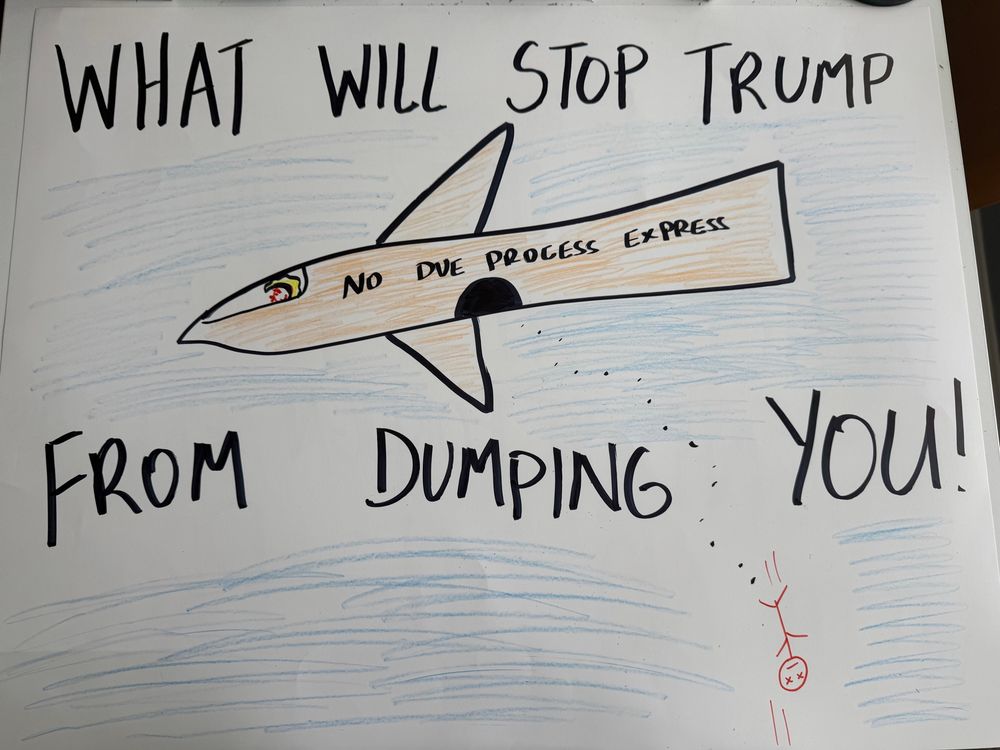 WHAT WILL STOP TRUMP
NO DUE PROCESS EXPRESS
FROM DUMPING YOU!